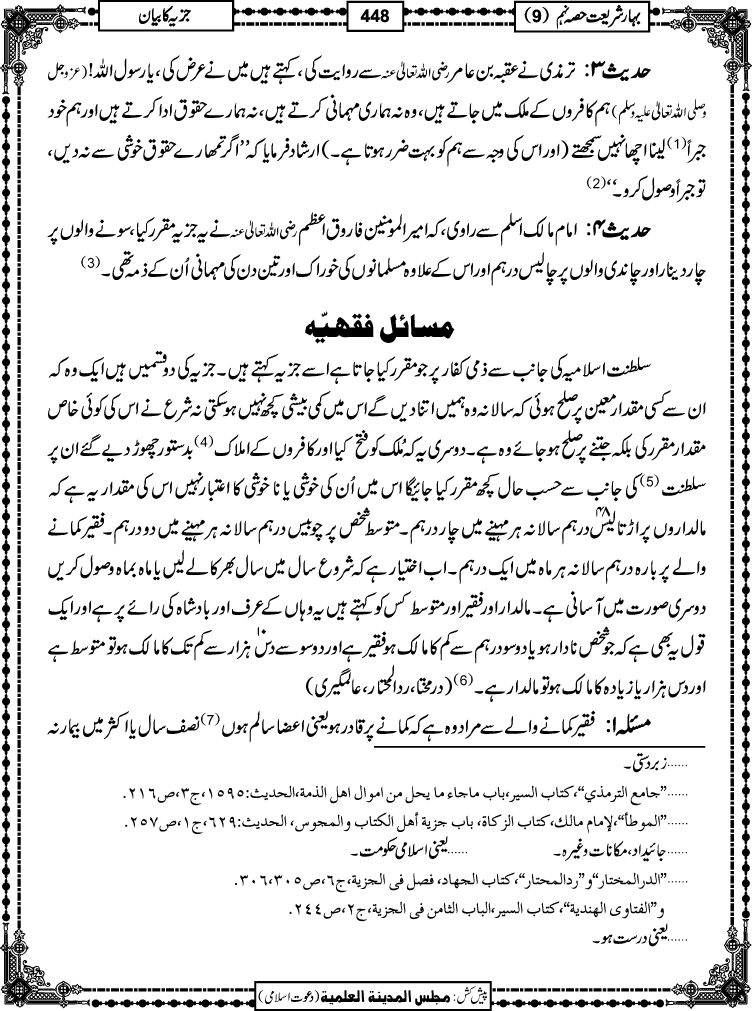 بہار شریعت حصہ نہم (9)
448
جزیہ کا بیان
حدیث ۳: ترمذی نے عقبہ بن عامر رضی اللہ تعالیٰ عنہ سے روایت کی، کہتے ہیں میں نے عرض کی، یارسول اللہ! (عزوجل
وصلی اللہ تعالیٰ علیہ وسلم) ہم کافروں کے ملک میں جاتے ہیں، وہ نہ ہماری مہمانی کرتے ہیں، نہ ہمارے حقوق ادا کرتے ہیں اور ہم خود
جبراً(1) لینا اچھا نہیں سمجھتے (اور اس کی وجہ سے ہم کو بہت ضرر ہوتا ہے۔) ارشاد فرمایا کہ ’’اگر تمھارے حقوق خوشی سے نہ دیں،
تو جبراً وصول کرو۔‘‘(2)
حدیث ۴: امام مالک اسلم سے راوی، کہ امیر المومنین فاروق اعظم رضی اللہ تعالیٰ عنہ نے یہ جزیہ مقرر کیا، سونے والوں پر
چار دینار اور چاندی والوں پر چالیس درہم اور اس کے علاوہ مسلمانوں کی خوراک اور تین دن کی مہمانی اُن کے ذمہ تھی۔(3)
مسائل فقهيّه
سلطنت اسلامیہ کی جانب سے ذمی کفار پر جو مقرر کیا جاتا ہے اسے جزیہ کہتے ہیں۔ جزیہ کی دو قسمیں ہیں ایک وہ کہ
ان سے کسی مقدار معین پر صلح ہوئی کہ سالانہ وہ ہمیں اتنا دیں گے اس میں کمی بیشی کچھ نہیں ہوسکتی نہ شرع نے اس کی کوئی خاص
مقدار مقرر کی بلکہ جتنے پر صلح ہو جائے وہ ہے۔ دوسری یہ کہ مُلک کو فتح کیا اور کافروں کے املاک(4) بدستور چھوڑ دیے گئے ان پر
سلطنت(5) کی جانب سے حسب حال کچھ مقرر کیا جائیگا اس میں اُن کی خوشی یا ناخوشی کا اعتبار نہیں اس کی مقدار یہ ہے کہ
مالداروں پر اڑتالیس۴۸ درہم سالانہ ہر مہینے میں چار درہم۔ متوسط شخص پر چوبیس درہم سالانہ ہر مہینے میں دو درہم۔ فقیر کمانے
والے پر بارہ درہم سالانہ ہر ماہ میں ایک درہم۔ اب اختیار ہے کہ شروع سال میں سال بھر کا لے لیں یا ماہ بماہ وصول کریں
دوسری صورت میں آسانی ہے۔ مالدار اور فقیر اور متوسط کس کو کہتے ہیں یہ وہاں کے عرف اور بادشاہ کی رائے پر ہے اور ایک
قول یہ بھی ہے کہ جو شخص نادار ہو یا دوسو درہم سے کم کا مالک ہو فقیر ہے اور دوسو سے دس۱۰ ہزار سے کم تک کا مالک ہو تو متوسط ہے
اور دس ہزار یا زیادہ کا مالک ہو تو مالدار ہے۔(6) (درمختار، ردالمحتار، عالمگیری)
مسئلہ ۱: فقیر کمانے والے سے مراد وہ ہے کہ کمانے پر قادر ہو یعنی اعضا سالم ہوں(7) نصف سال یا اکثر میں بیمار نہ
......زبردستی۔
......”جامع الترمذي“، كتاب السير، باب ماجاء ما يحل من اموال اهل الذمة، الحديث: ١٥٩٥، ج٣، ص٢١٦.
......”الموطأ“، لإمام مالك، كتاب الزكاة، باب جزية أهل الكتاب والمجوس، الحديث: ٦٢٩، ج١، ص٢٥٧.
......جائیداد، مکانات وغیرہ۔ ......یعنی اسلامی حکومت۔
......”الدرالمختار“ و ”ردالمحتار“، كتاب الجهاد، فصل في الجزية، ج٦، ص٣٠٥، ٣٠٦.
و ”الفتاوى الهندية“، كتاب السير، الباب الثامن في الجزية، ج٢، ص٢٤٤.
......یعنی درست ہو۔
پیش کش: مجلس المدينة العلمية (دعوت اسلامی)